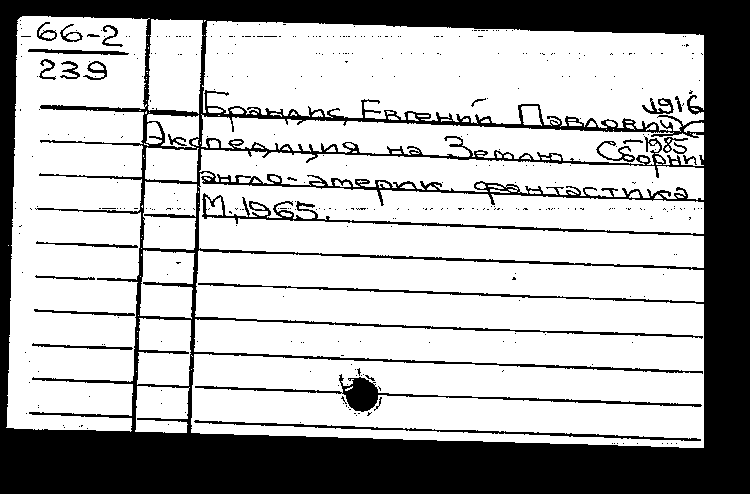 66-2
239
Брандис, Евгений Павлович (1916
-1985
Экспедиция на Землю. Сборник
англо-америк. фантастика.
М., 1965.